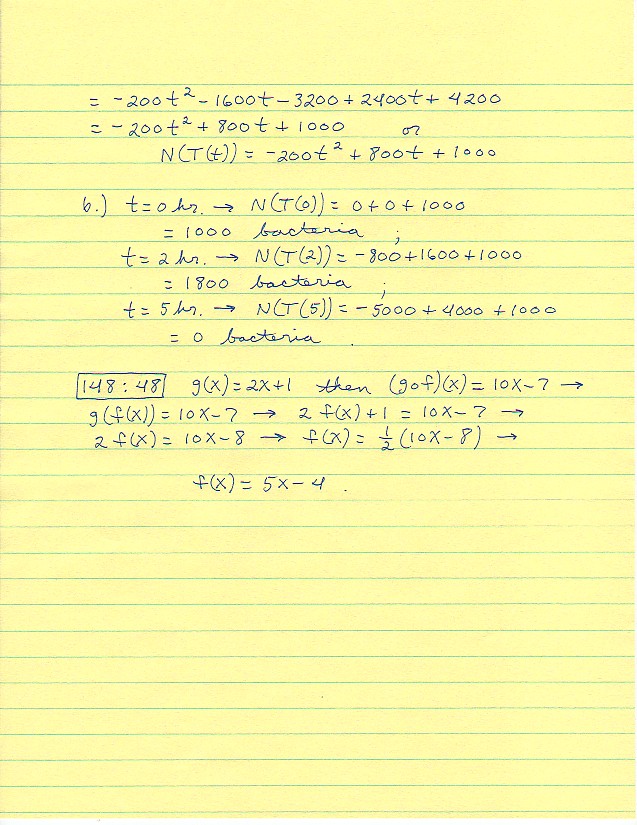 = -200t² - 1600t - 3200 + 2400t + 4200
= -200t² + 800t + 1000 or
N(T(t)) = -200t² + 800t + 1000
b.) t=0 hr. → N(T(0)) = 0+0+1000
= 1000 bacteria ;
t= 2 hr. → N(T(2)) = -800+1600+1000
= 1800 bacteria ;
t= 5 hr. → N(T(5)) = -5000 + 4000 + 1000
= 0 bacteria .
148 : 48 g(x) = 2x+1 then (gof)(x) = 10x-7 →
g(f(x)) = 10x-7 → 2 f(x) + 1 = 10x-7 →
2 f(x) = 10x-8 → f(x) = 1/2 (10x-8) →
f(x) = 5x-4 .